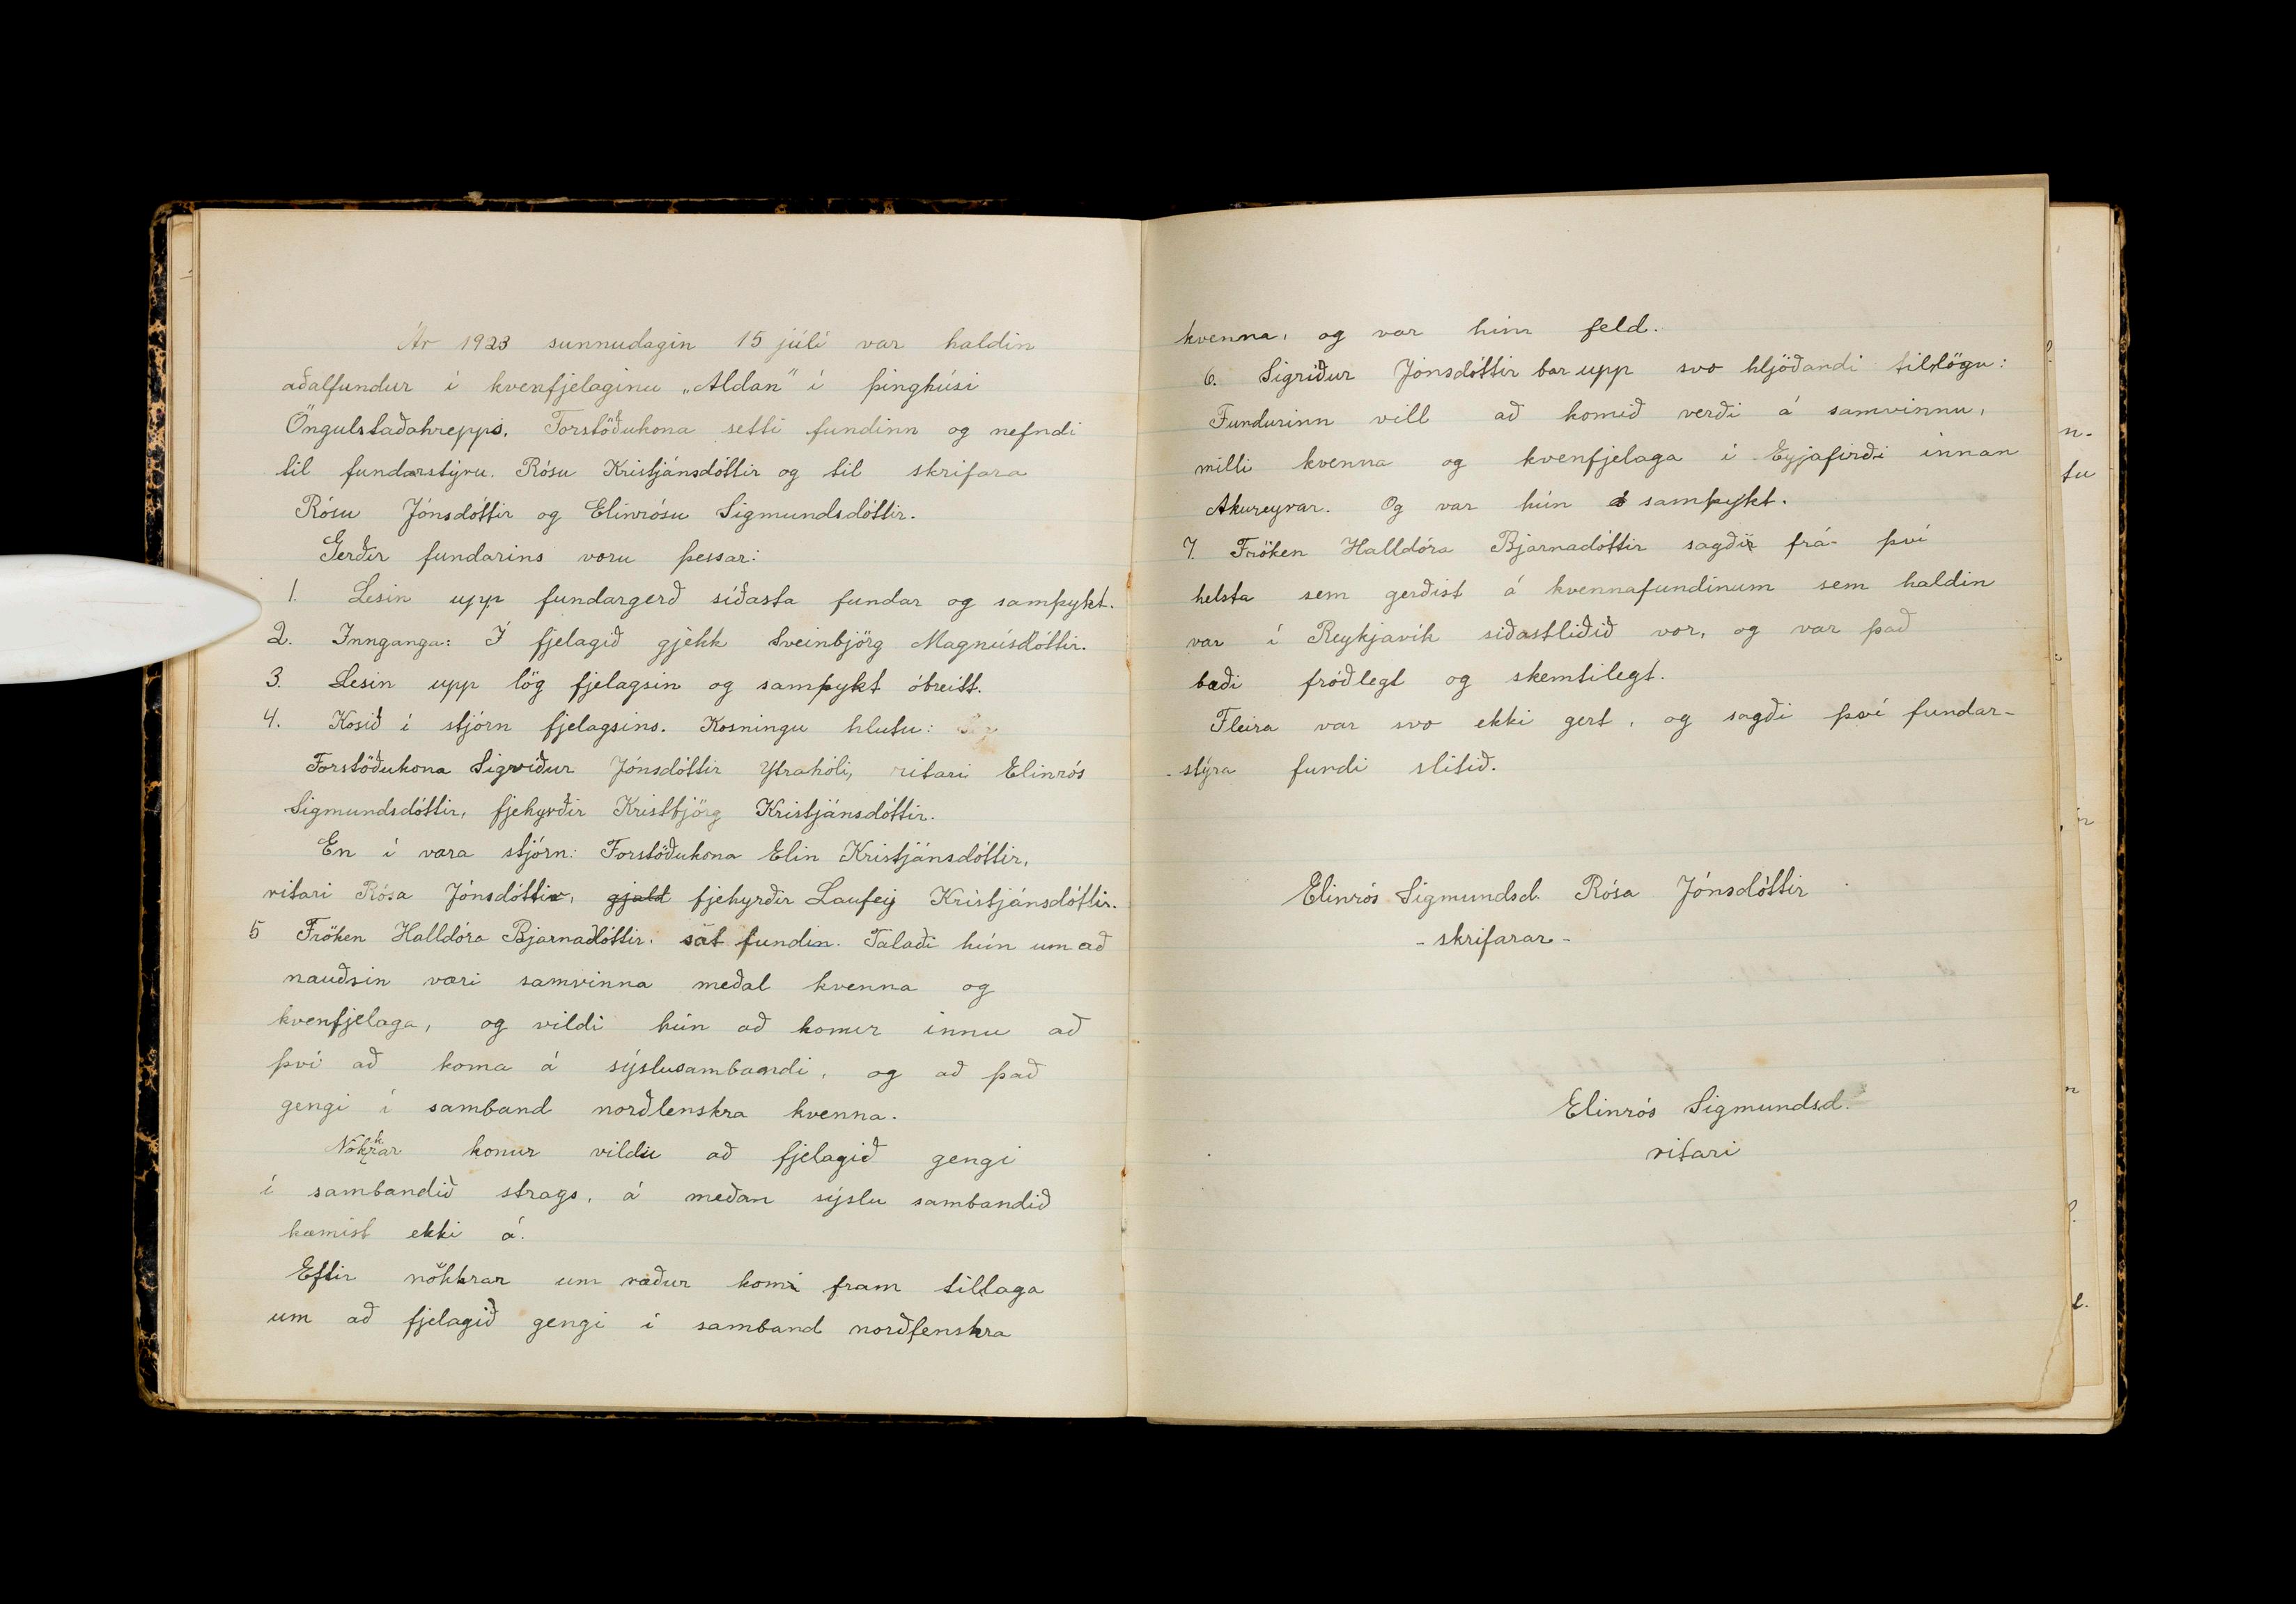 Ár 1923 sunnudagin 15 júlí var haldin
aðalfundur í kvenfjelaginu „Aldan" í þinghúsi
Öngulstaðahrepps. Forstöðukona setti fundinn og nefndi
til fundarstýru. Rósu Kristjánsdóttir og til skrifara
Rósu Jónsdóttir og Elinrósu Sigmundsdóttir.
Gerðir fundarins voru þessar:
1. Lesin upp fundargerð síðasta fundar og samþykt.
2. Innganga: Í fjelagið gjekk Sveinbjörg Magnúsdóttir.
3. Lesin upp lög fjelagsin og samþykt óbreitt.
4. Kosið í stjórn fjelagsins. Kosningu hlutu:
Forstöðukona Sigríður Jónsdóttir Ytrahóli, ritari Elinrós
Sigmundsdóttir, fjehyrðir Kristbjörg Kristjánsdóttir.
En í vara stjórn: Forstöðukona Elin Kristjánsdóttir,
ritari Rósa Jónsdóttir, gjald fjehyrðir Laufey Kristjánsdóttir.
5 Fröken Halldóra Bjarnadóttir. sat fundin. Talaði hún um að
nauðsin væri samvinna meðal kvenna og
kvenfjelaga, og vildi hún að konur innu að
því að koma á sýslusambandi, og að það
gengi í samband norðlenskra kvenna.
Nokkrar konur vildu að fjelagið gengi
í sambandið strags, á meðan sýslu sambandið
kæmist ekki á.
Eftir nökkrar um ræður kom fram tillaga
um að fjelagið gengi í samband norðlenskra
kvenna, og var hún feld.
6. Sigríður Jónsdóttir bar upp svo hljóðandi tillögu:
Fundurinn vill að komið verði á samvinnu,
milli kvenna og kvenfjelaga í Eyjafirði innan
Akureyrar. Og var hún samþykt.
7. Fröken Halldóra Bjarnadóttir sagði frá því
helsta sem gerðist á kvennafundinum sem haldin
var í Reykjavík síðastliðið vor, og var það
bæði fróðlegt og skemtilegt.
Fleira var svo ekki gert, og sagði því fundar-
-stýra fundi slitið.
Elinrós Sigmundsd. Rósa Jónsdóttir
- skrifarar -
Elinrós Sigmundsd.
ritari